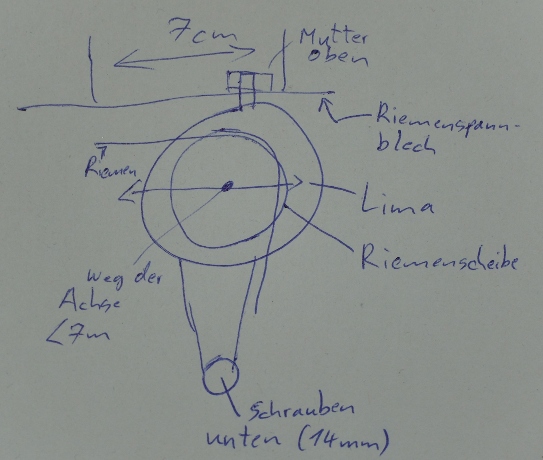 7cm
Mutter
oben
Riemenspann-
blech
Riemen
Lima
Riemenscheibe
weg der
Achse
<7m
schrauben
unten (14mm)